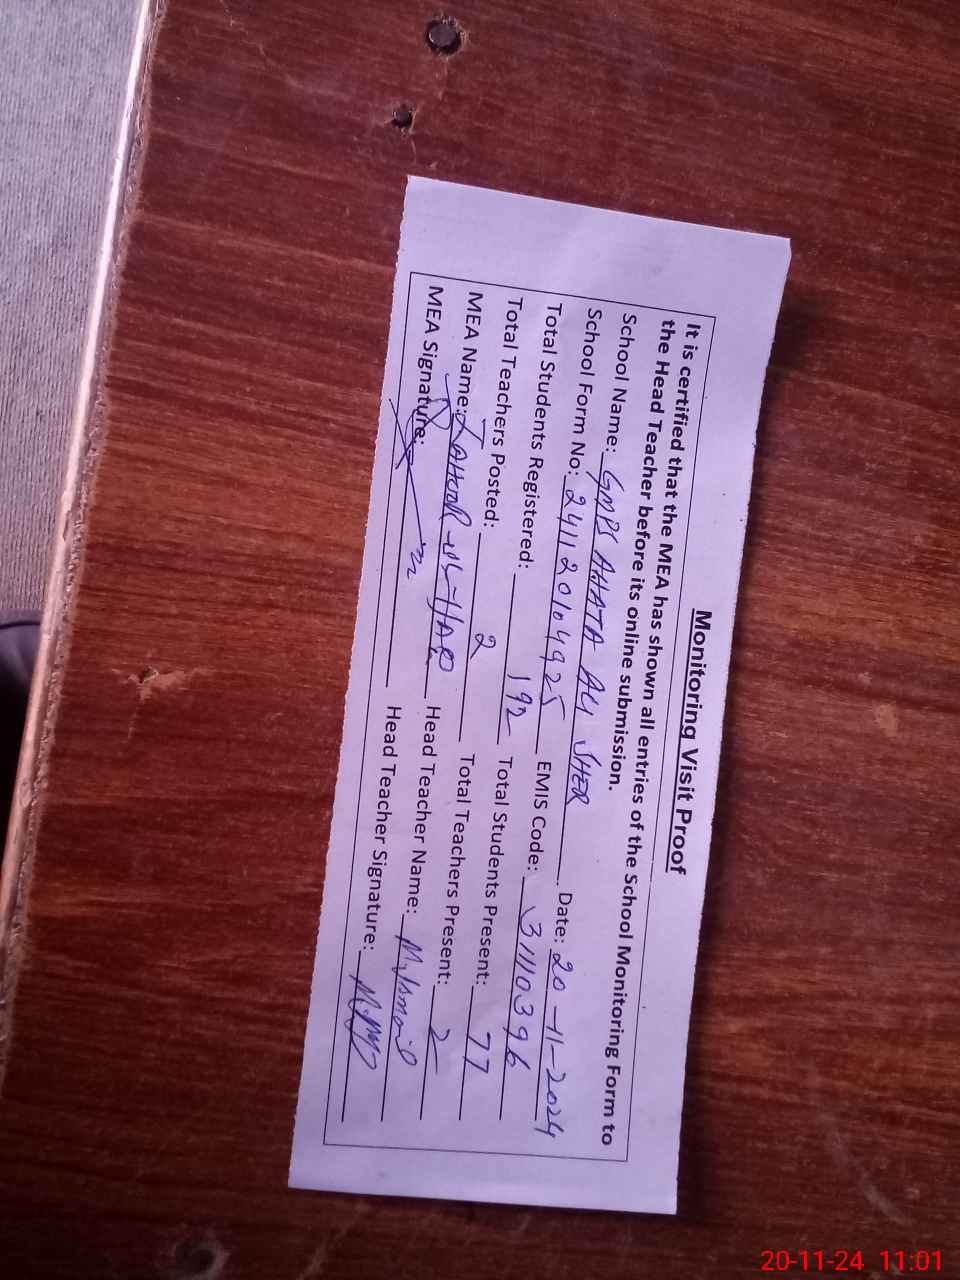 Monitoring Visit Proof
It is certified that the MEA has shown all entries of the School Monitoring Form to
the Head Teacher before its online submission.
School Name: GMPS AHATA ALI SHER Date: 20-11-2024
School Form No: 241120104925 EMIS Code: 31110396
Total Students Registered: 192 Total Students Present: 77
Total Teachers Posted: 2 Total Teachers Present: 2
MEA Name: ZAHOOR-UL-HAQ Head Teacher Name: M. Ismail
MEA Signature: Head Teacher Signature:
20-11-24 11:01